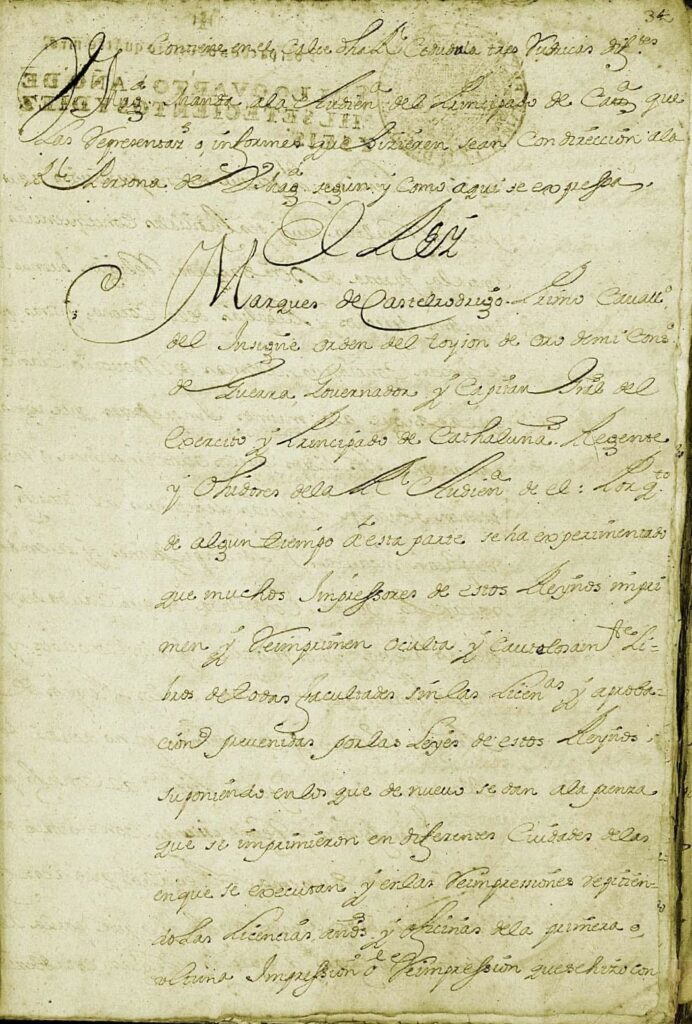 34
Contiene en el Calce dha Rl Cedula tres Rubricas difes
Su Magd manda a la Audiena del Principado de Catta que
las Representaz o, informes que hizieren sean con dirección a la
Rl Persona de Su Magd segun, y como aqui se expressa.
El Rey
Marques de Castelrodrigo. Primo Cavallo
del Insigñe orden del toyson de oro de mi Conso
de Guerra Governador y Capitan Genl del
Exercito y Principado de Cathaluña, Regente
y Ohidores de la Rl Audiena de el: Por qto
de algun tiempo a esta parte se ha experimentado
que muchos Impressores de estos Reynos impri
men y Reimprimen oculta y cautelosamte Li-
bros de todas facultades sin las Licenas y aproba-
ciones prevenidas por las Leyes de estos Reynos
suponiendo en los que de nuevo se dan a la prenza
que se imprimieron en diferentes Ciudades de las
en que se executan y en las Reimpressiones repitien-
do las Licencias, años, y oficinas de la primera o
ultima Impression o Reimpression que se hizo con